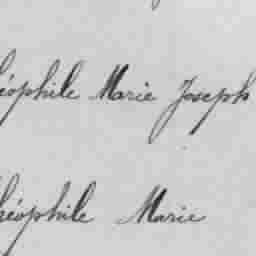 éophile Marie Joseph
héophile Marie